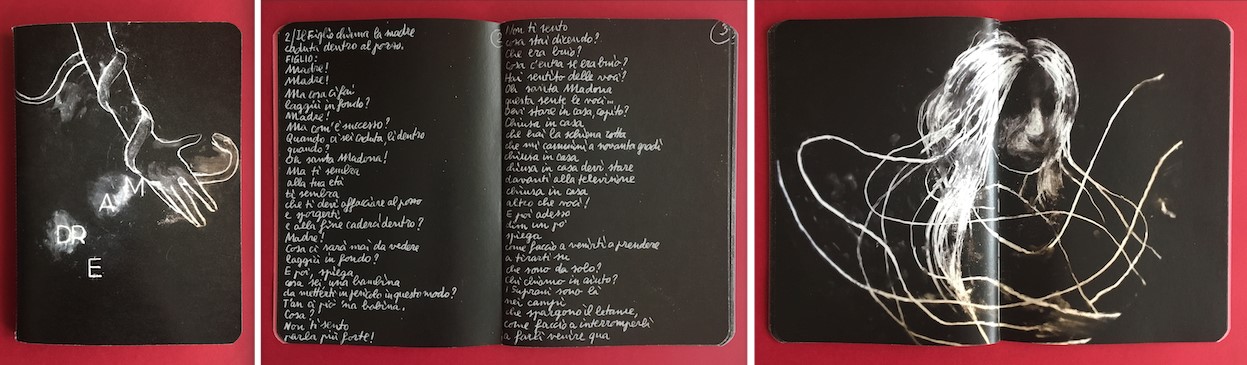 M
A
DR
E
2/Il Figlio chiama la madre
caduta dentro al pozzo.
FIGLIO:
Madre!
Madre!
Ma cosa ci fai
laggiù in fondo?
Madre!
Ma com'è successo?
Quando ci sei caduta, lì dentro
quando?
Oh santa Madona!
Ma ti sembra
alla tua età
ti sembra
che ti devi affacciare al pozzo
e sporgerti
e alla fine caderci dentro?
Madre!
Cosa ci sarà mai da vedere
laggiù in fondo?
E poi, spiega
cosa sei, una bambina
da metterti in pericolo in questo modo?
T'an ci piò 'na babina.
Cosa?
Non ti sento
parla più forte!
2
3
Non ti sento
cosa stai dicendo?
Che era buio?
Cosa c'entra se era buio?
Hai sentito delle voci?
Oh santa Madona
questa sente le voci...
Devi stare in casa, capito?
Chiusa in casa
che hai la schiena rotta
che mi cammini a novanta gradi
chiusa in casa
chiusa in casa devi stare
davanti alla televisione
chiusa in casa
altro che voci!
E poi adesso
dim un po'
spiega
come faccio a venirti a prendere
a tirarti su
che sono da solo?
Chi chiamo in aiuto?
I Suprani sono là
nei campi
che spargono il letame,
come faccio a interromperli
a farli venire qua